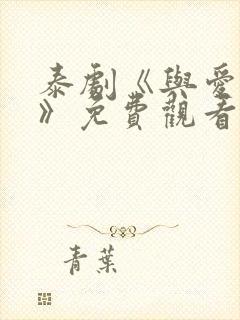 泰劇《與愛
》免費觀看
青葉